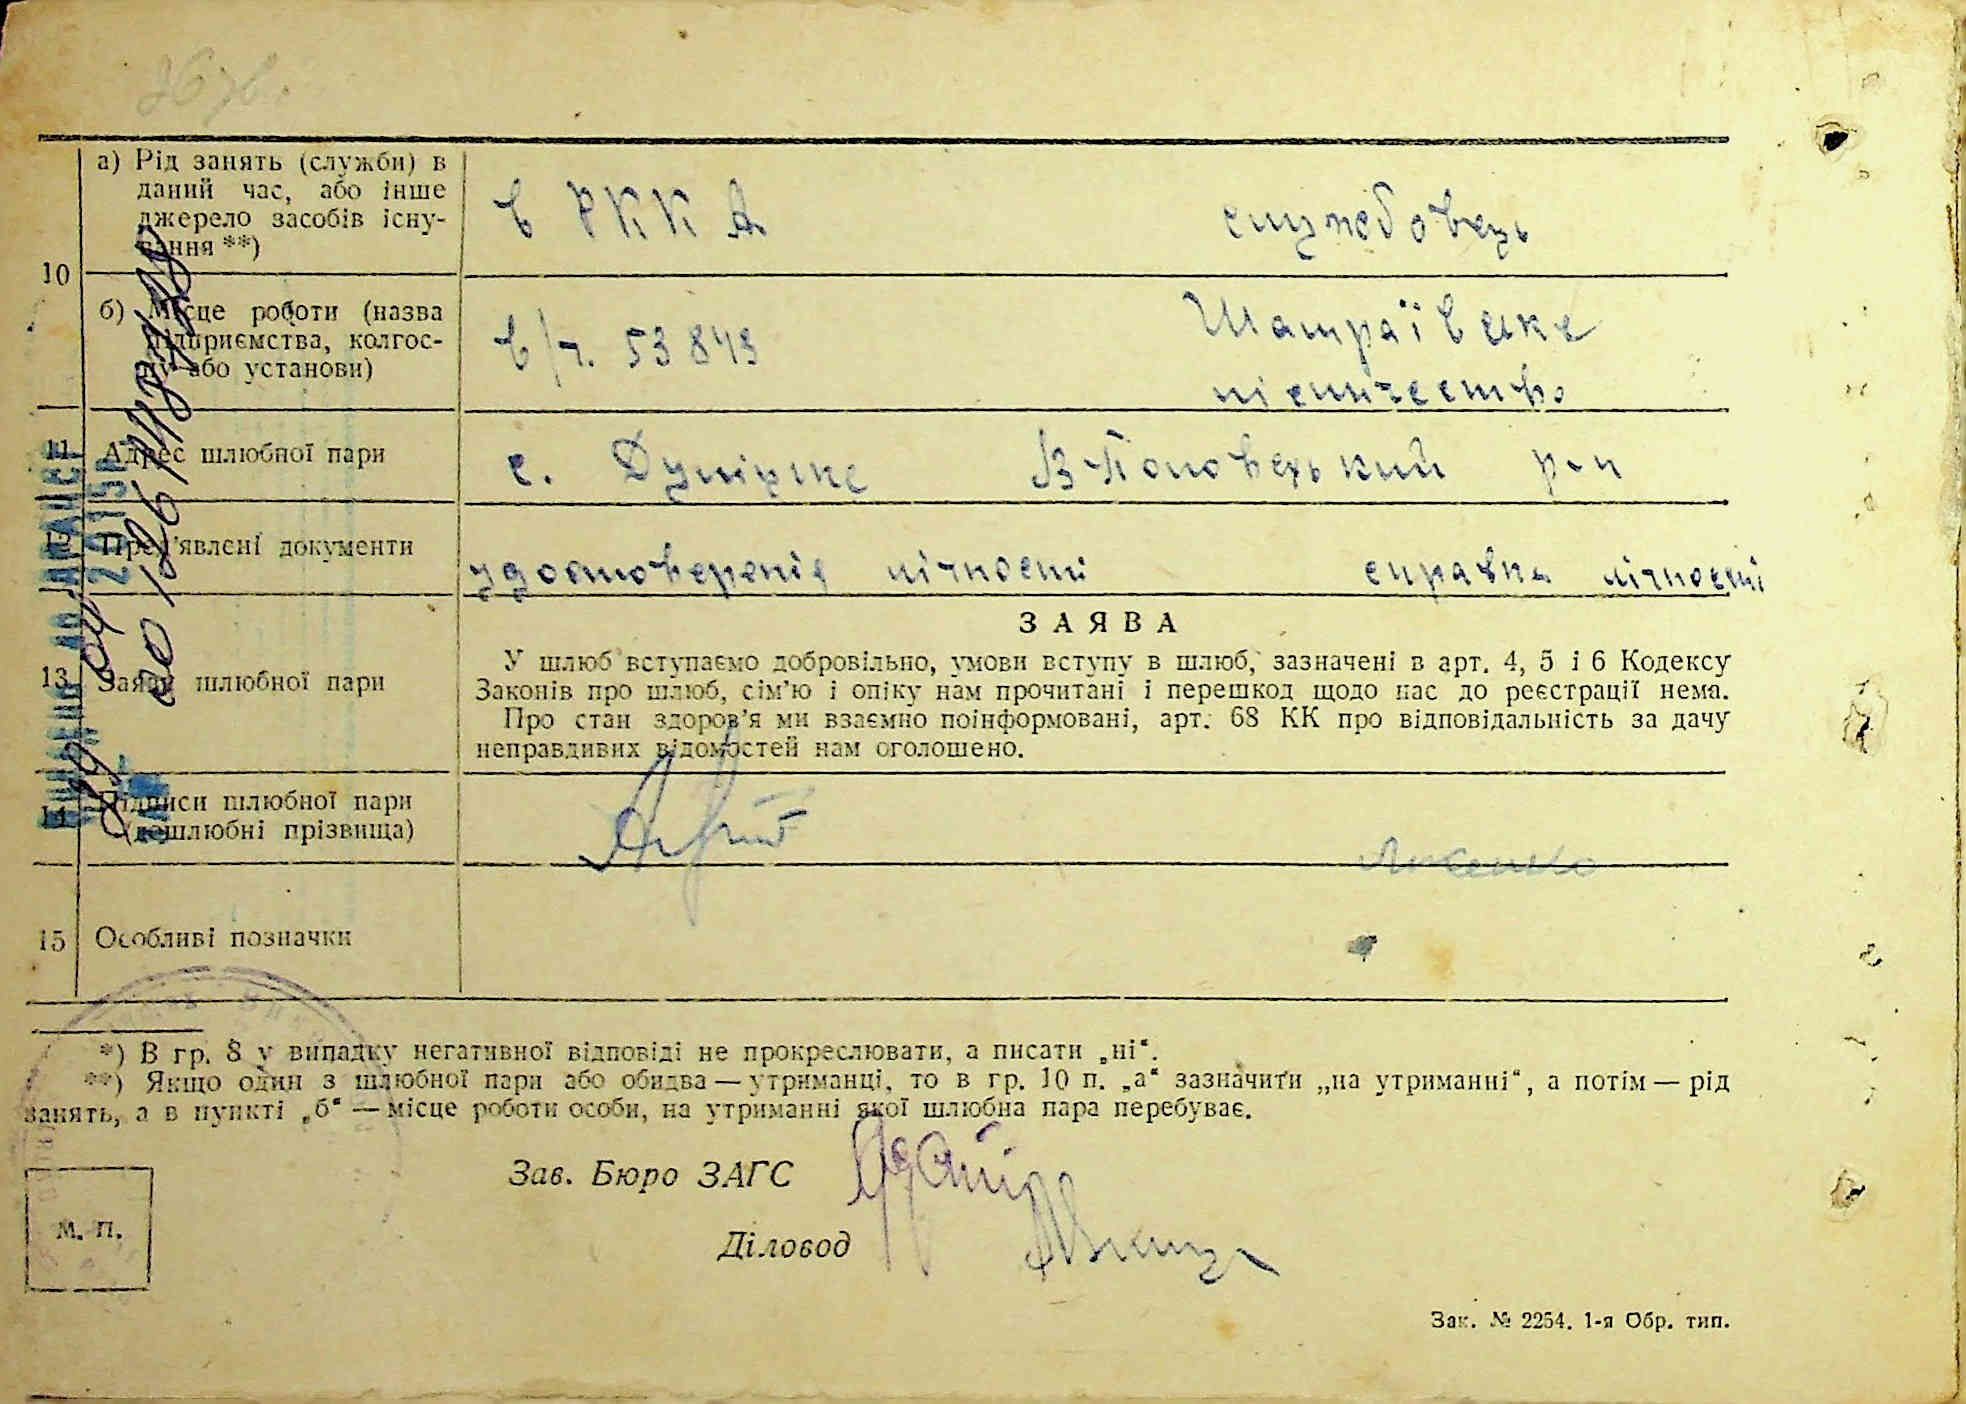 а) Рід занять (служби) в
даний час, або інше
джерело засобів існу-
вання **)
в РККА службовець
10
б) Місце роботи (назва
підприємства, колгос-
пу або установи)
в/ч. 53843 Шатраївське
лісничество
11 Адрес шлюбної пари
с. В-Половецький р-н
12 Пред'явлені документи
удостоверенія лічності справка лічності
13 Заява шлюбної пари
ЗАЯВА
У шлюб вступаємо добровільно, умови вступу в шлюб, зазначені в арт. 4, 5 і 6 Кодексу
Законів про шлюб, сім'ю і опіку нам прочитані і перешкод щодо нас до реєстрації нема.
Про стан здоров'я ми взаємно поінформовані, арт. 68 КК про відповідальність за дачу
неправдивих відомостей нам оголошено.
14 Підписи шлюбної пари
(дошлюбні прізвища)
15 Особливі позначки
*) В гр. 8 у випадку негативної відповіді не прокреслювати, а писати „ні“.
**) Якщо один з шлюбної пари або обидва — утриманці, то в гр. 10 п. „а“ зазначити „на утриманні“, а потім — рід
занять, а в пункті „б“ — місце роботи особи, на утриманні якої шлюбна пара перебуває.
Зав. Бюро ЗАГС
М. П.
Діловод
Зак. № 2254. 1-я Обр. тип.